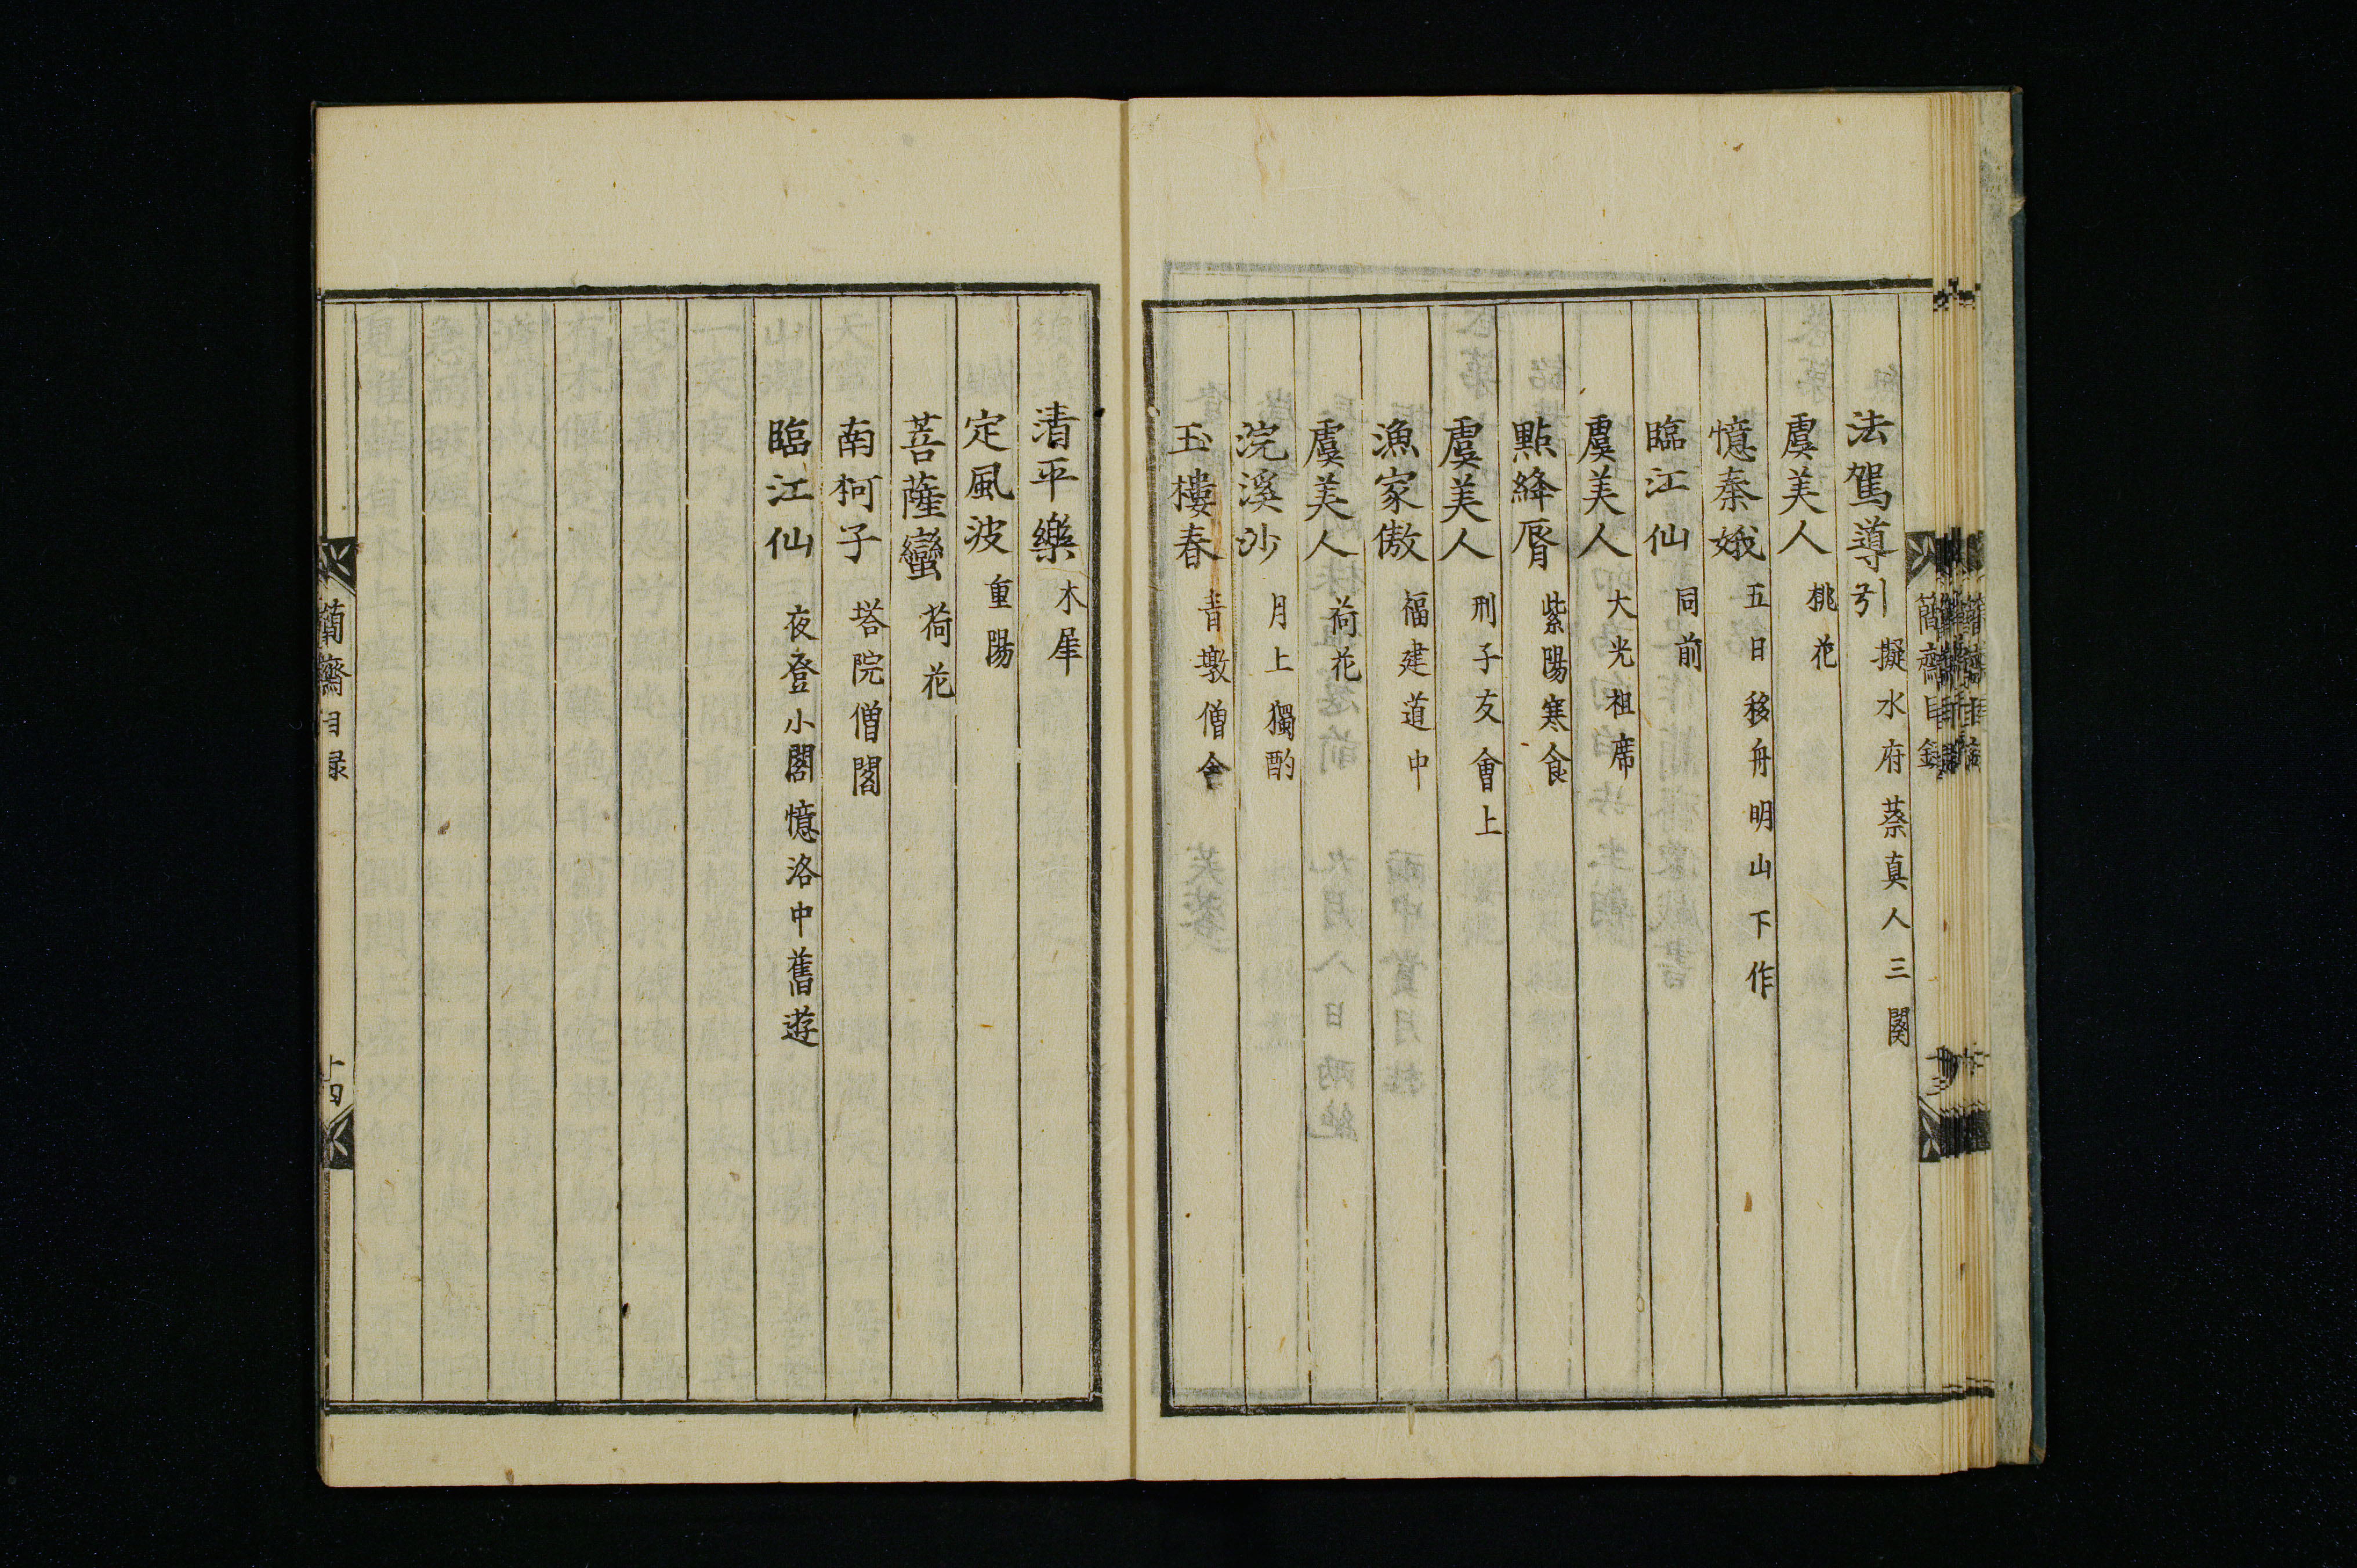 法駕導引 擬水府蔡真人三闋
虞美人 桃花
憶秦娥 五日移舟明山下作
臨江仙 同前
虞美人 大光祖席
點絳脣 紫陽寒食
虞美人 刑子友會上
漁家傲 福建道中
虞美人 荷花
浣溪沙 月上獨酌
玉樓春 青墩僧舍
清平樂 木犀
定風波 重陽
菩薩蠻 荷花
南柯子 塔院僧閣
臨江仙 夜登小閣憶洛中舊遊
簡齋目録
十四